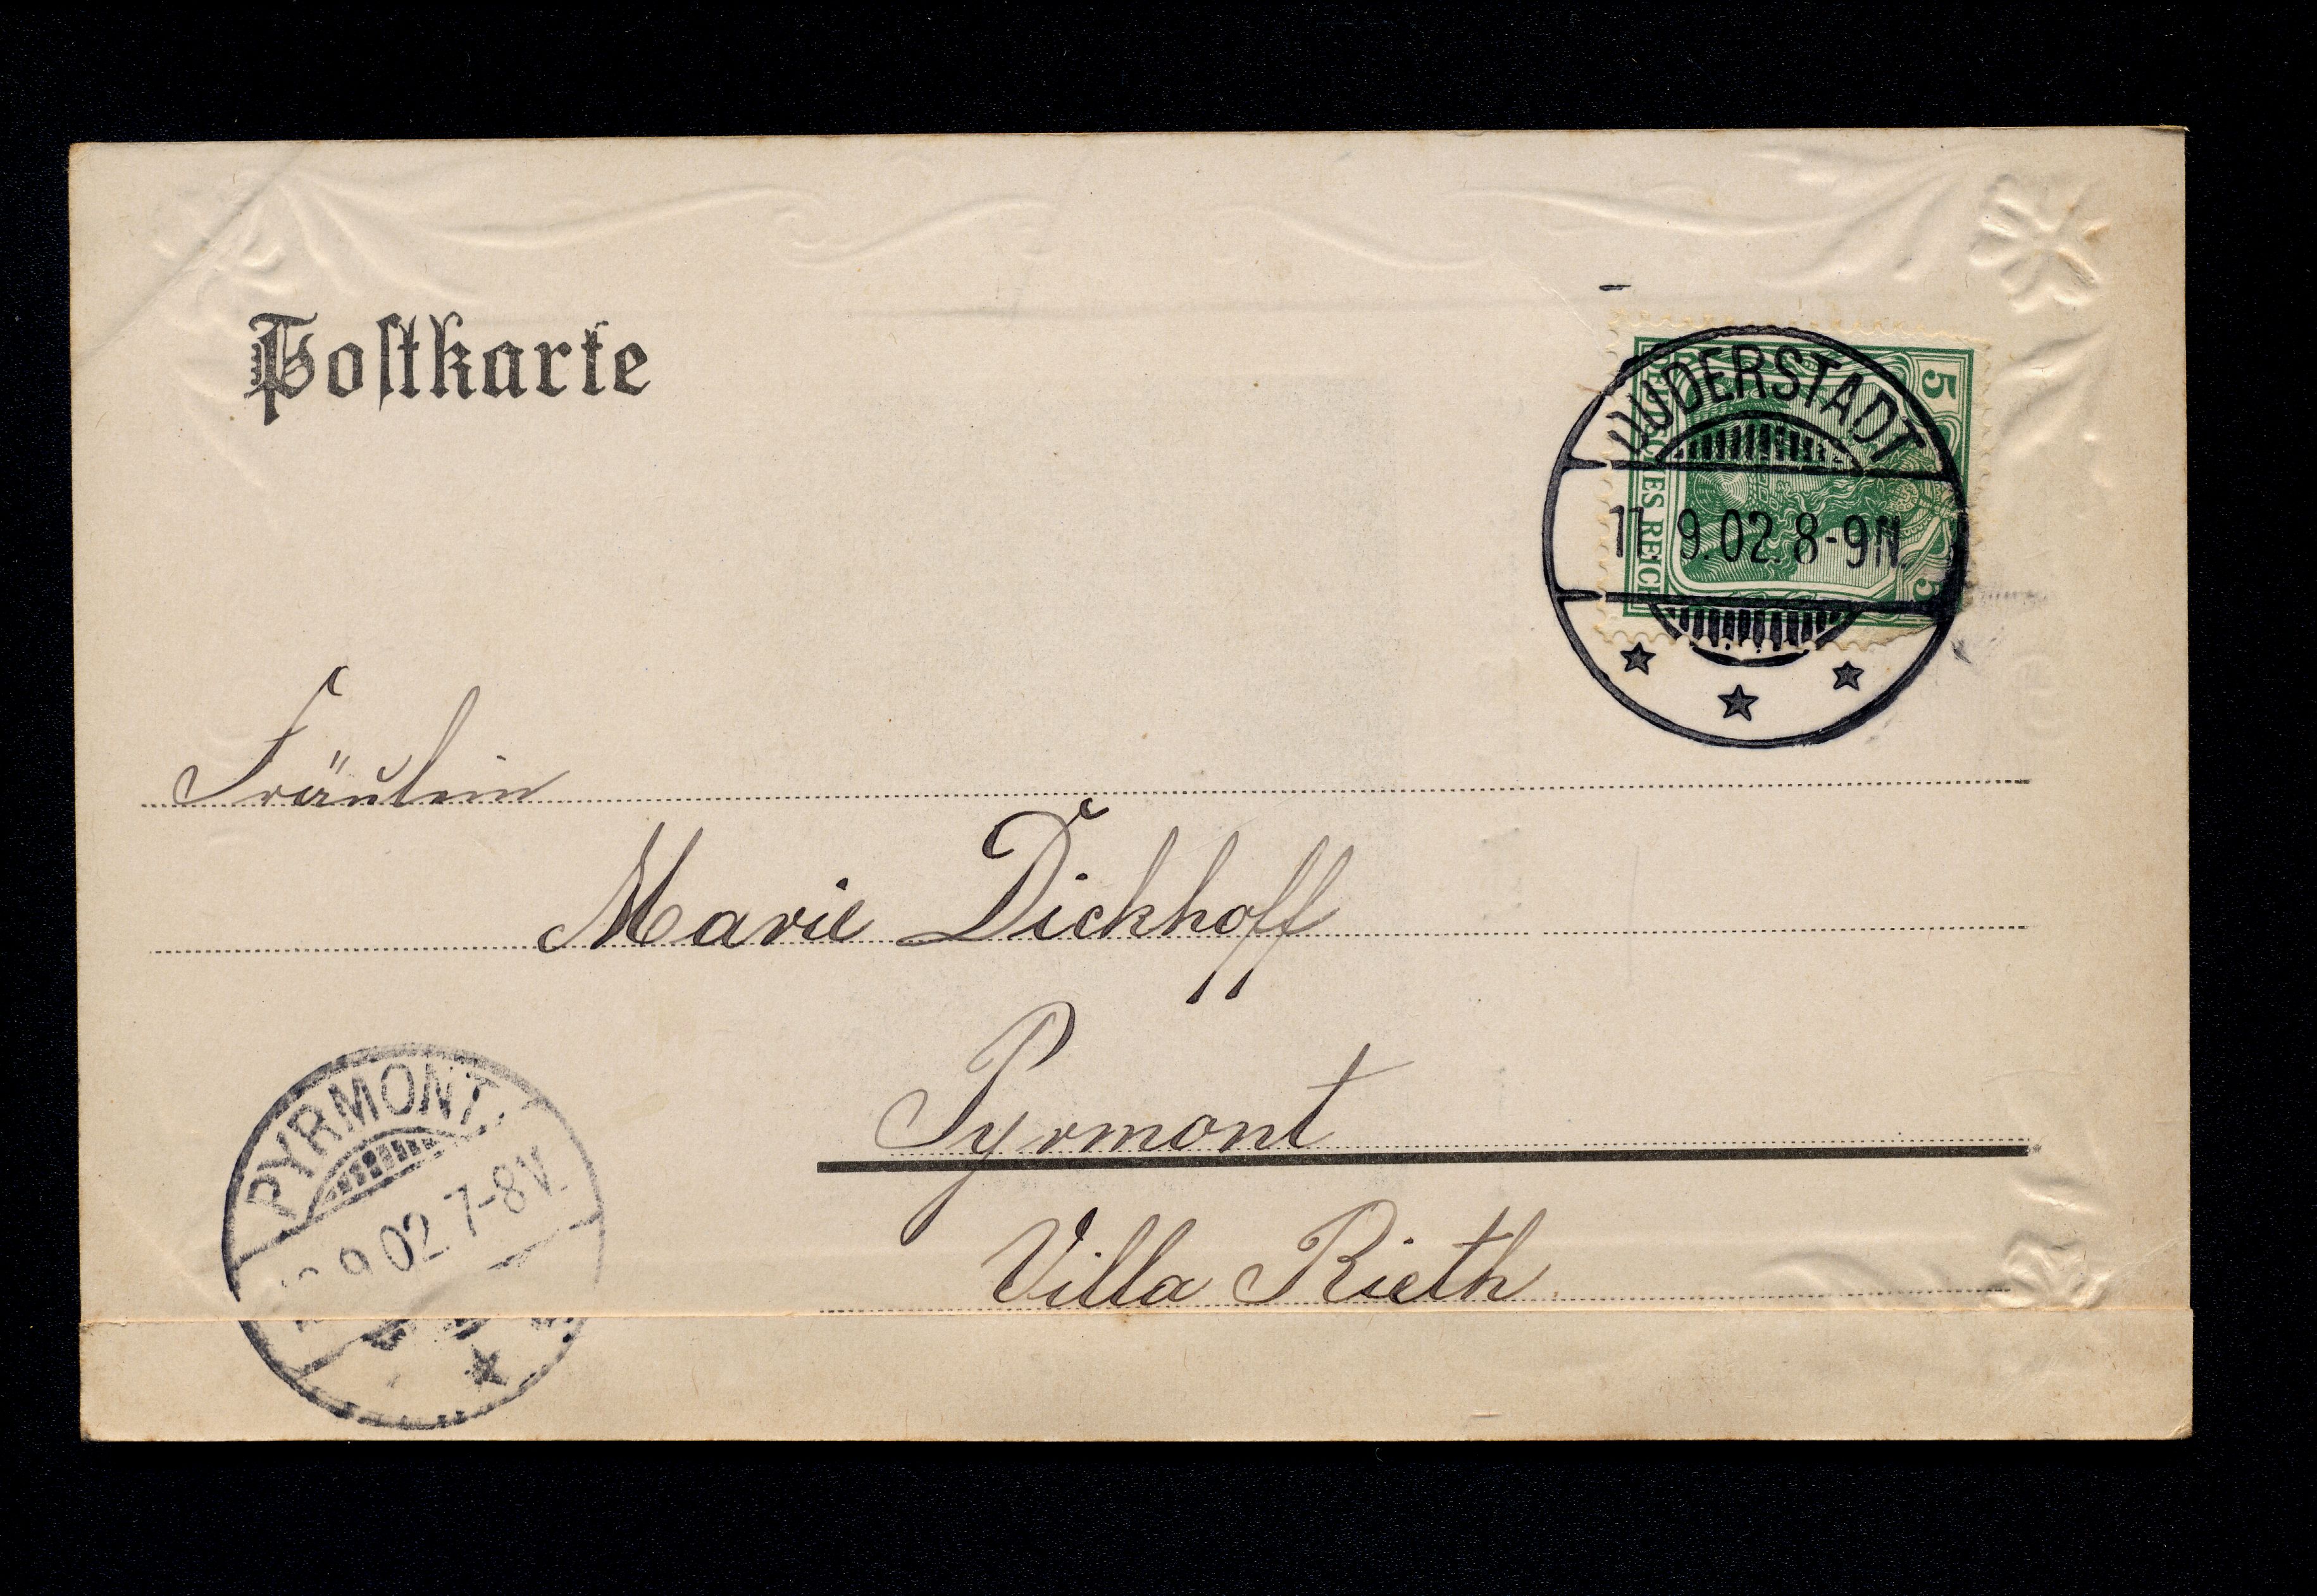 Postkarte
5
DEUTSCHES REICH
5
DUDERSTADT
11.9.02.8-9N.
Fräulein
Marie Dickhoff
Pyrmont
Villa Rieth
PYRMONT
9.02 7-8V.